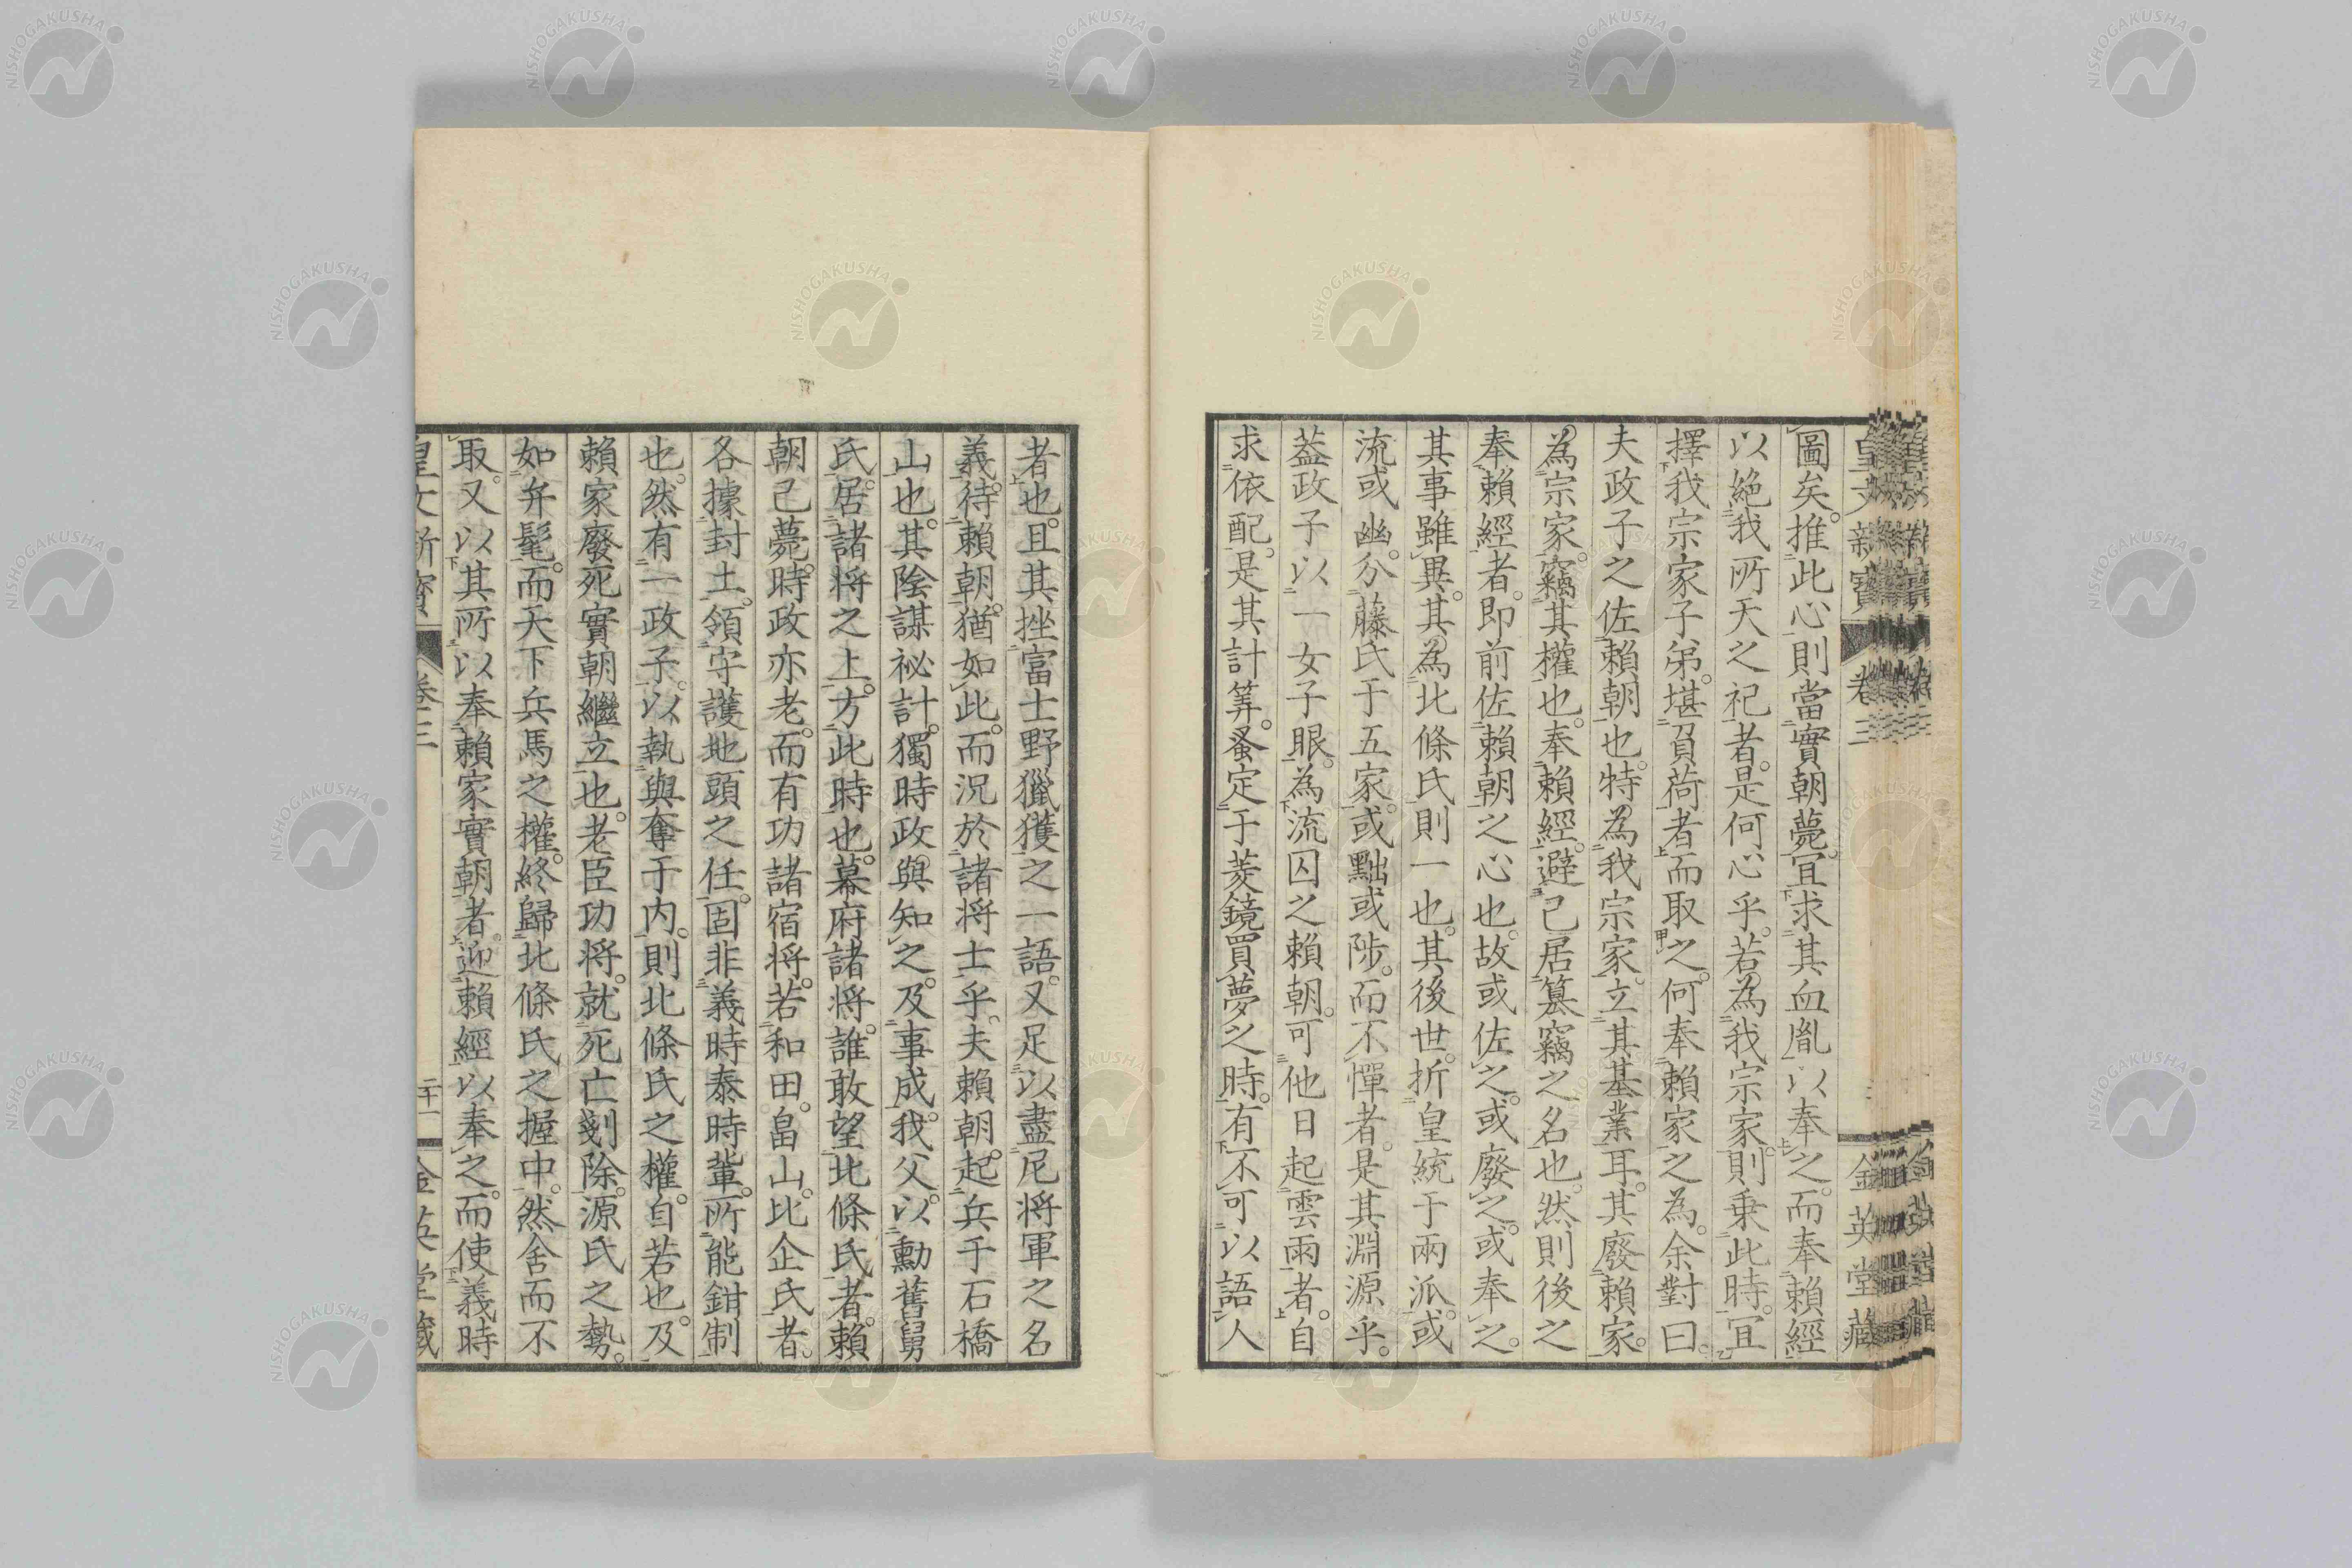 皇文新寶 卷三 金英堂藏
圖矣。推此心則當實朝薨。宜求其血胤以奉之。而奉賴經
以絕我所天之祀者。是何心乎。若為我宗家。則乘此時。宜
擇我宗家子弟。堪負荷者而取之。何奉賴家之為。余對曰。
夫政子之佐賴朝也。特為我宗家立其基業耳。其廢賴家。
為宗家。竊其權也。奉賴經。避己居篡竊之名也。然則後之
奉賴經者。即前佐賴朝之心也。故或佐之。或廢之。或奉之。
其事雖異。其為北條氏則一也。其後世。折皇統于兩派。或
流或幽。分藤氏于五家。或黜或陟。而不憚者。是其淵源乎。
蓋政子以一女子眼。為流囚之賴朝。可他日起雲雨者。自
求依配。是其計筭。蚤定于菱鏡買夢之時。有不可以語人
者也。且其挫富士野獵獲之一語。又足以盡尼將軍之名
義。待賴朝。猶如此。而況於諸將士乎。夫賴朝。起兵于石橋
山也。其陰謀祕計。獨時政與知之。及事成。我父。以勳舊舅
氏。居諸將之上。方此時也。幕府諸將。誰敢望北條氏者。賴
朝己薨。時政亦老。而有功諸宿將。若和田。畠山。比企氏者。
各據封土。領守護地頭之任。固非義時泰時輩。所能鉗制
也。然有一政子。以執與奪于內。則北條氏之權。自若也。及
賴家廢死實朝繼立也。老臣功將。就死亡剗除。源氏之勢。
如弁髦。而天下兵馬之權。終歸北條氏之握中。然舍而不
取。又以其所以奉賴家實朝者。迎賴經以奉之。而使義時
皇文新寶 卷三 二十一 金英堂藏